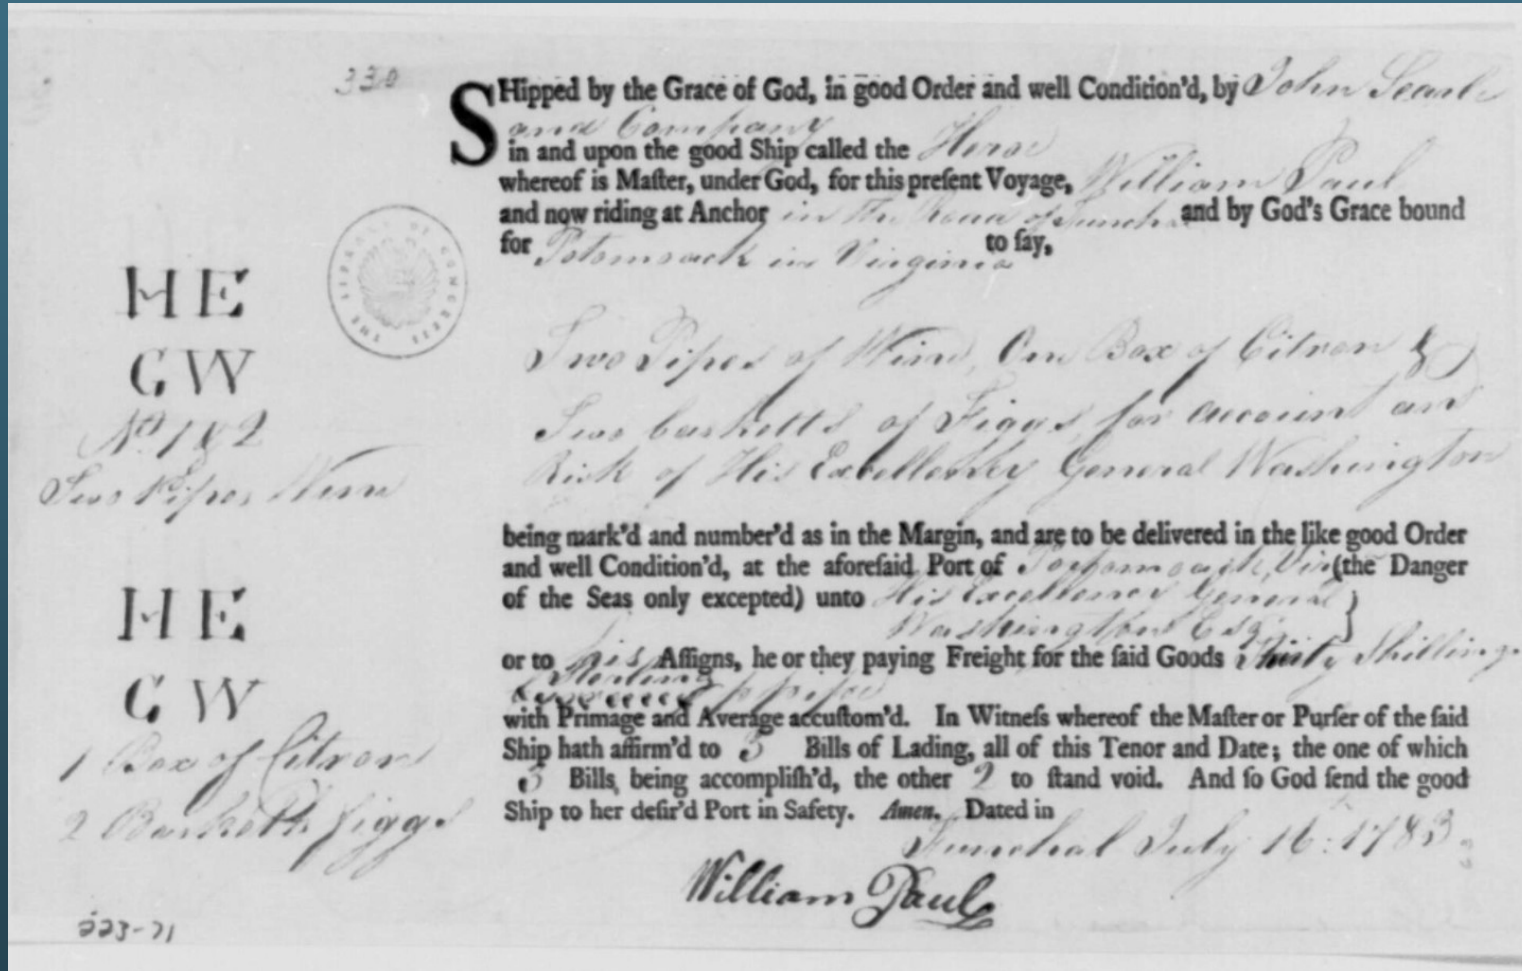 330
SHipped by the Grace of God, in good Order and well Condition'd, by John Searle
and Company
in and upon the good Ship called the Heroe
whereof is Maſter, under God, for this preſent Voyage, William Paul
and now riding at Anchor in the Road of Funchal and by God's Grace bound
for Potomoack in Virginia to ſay,
THE LIBRARY OF CONGRESS
H E
G W
No 1 & 2
Two Pipes Wine
Two Pipes of Wine, One Box of Citron &
Two basketts of Figgs, for account and
Risk of His Excellency General Washington
being mark'd and number'd as in the Margin, and are to be delivered in the like good Order
and well Condition'd, at the aforeſaid Port of Potomoack, Vir (the Danger
of the Seas only excepted) unto His Excellency General
Washington Esqr
or to his Aſſigns, he or they paying Freight for the ſaid Goods Thirty Shillings
Sterling p pipe
with Primage and Average accuſtom'd. In Witneſs whereof the Maſter or Purſer of the ſaid
Ship hath affirm'd to 3 Bills of Lading, all of this Tenor and Date; the one of which
3 Bills, being accompliſh'd, the other 2 to ſtand void. And ſo God ſend the good
Ship to her deſir'd Port in Safety. Amen. Dated in
Funchal July 16th 1783
H E
G W
1 Box of Citron
2 Basketts figgs
William Paul
223-71